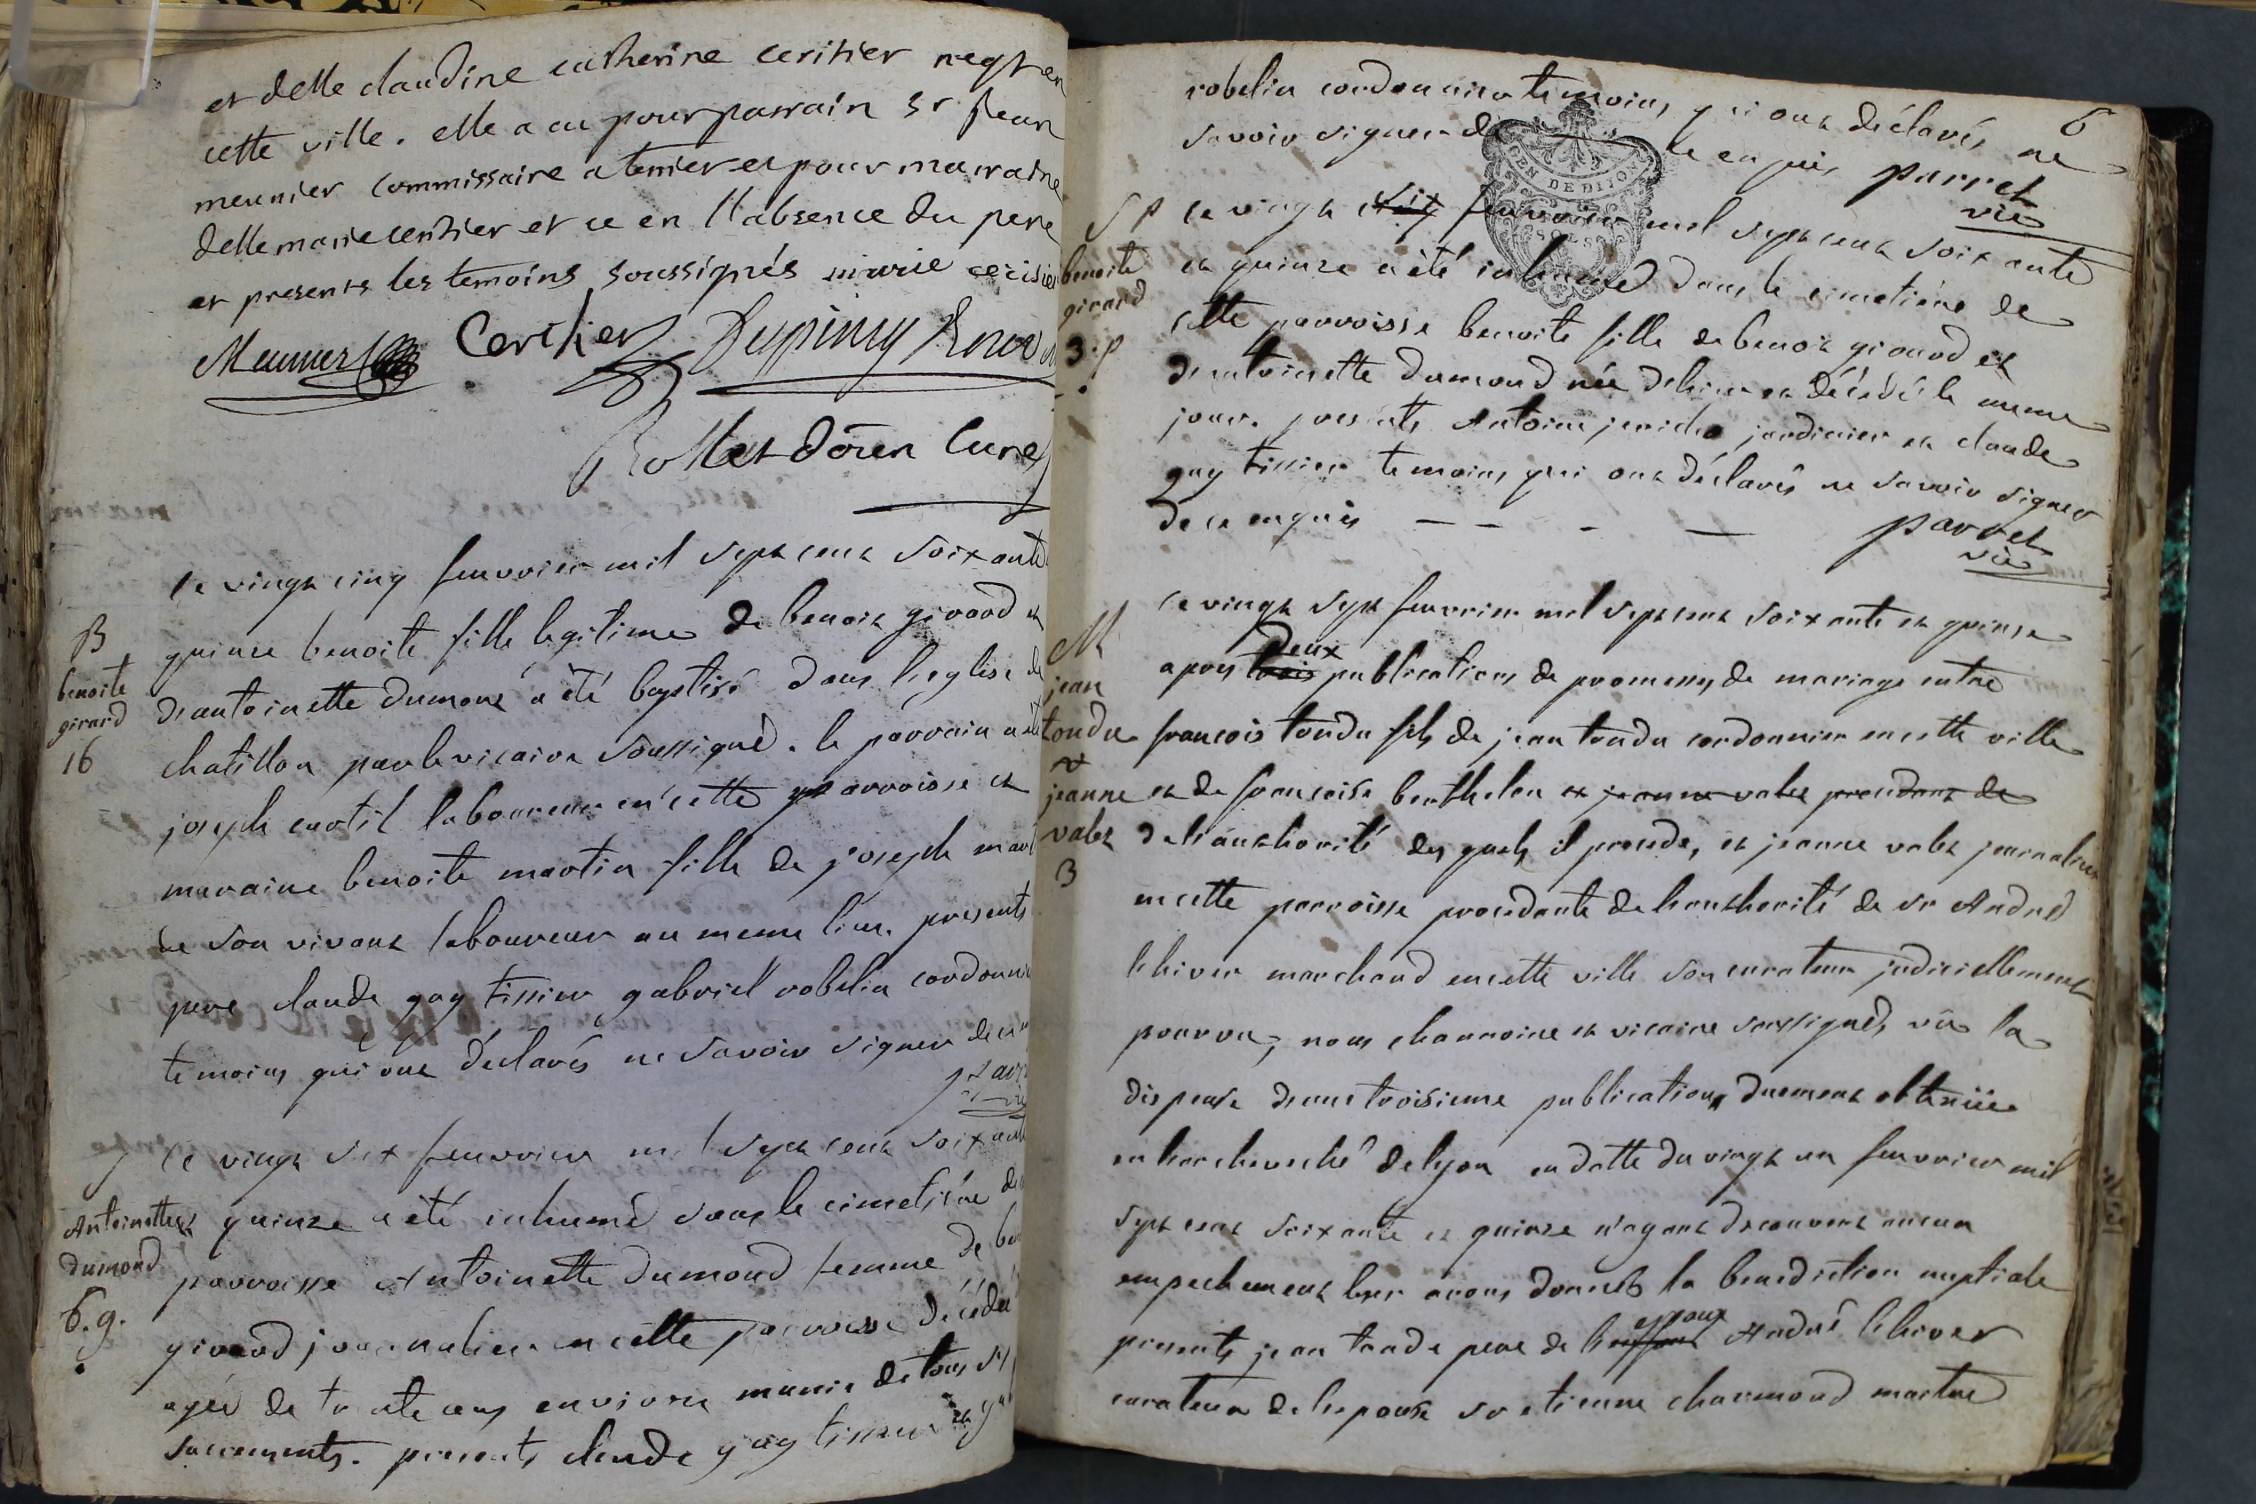 et delle claudine catherine ceritier negt en
cette ville. elle a eu pour parrain sr jean
meunier commissaire a terrier et pour marraine
delle marie ceritier et ce en l'absence du pere
et presents les temoins soussignés marie
Meunier Ceritier
Rollet doien Curé
le vingt cinq feuvrier mil sept cent soixante
B
quinze benoite fille legitime de benoit girard et
benoite
girard
16
d'antoinette dumont a été baptisé dans l'eglise de
chatillon par le vicaire soussigné. le parrain a été
joseph laboureur en cette parroisse et
maraine benoite martin fille de joseph mart
de son vivant laboureur au meme lieu. presents
pere claude gay tissier gabriel robelin cordonni
temoins qui ont déclarés ne savoir signer de ce
le vingt six feuvrier mil sept cent soixante
Antoinette
dumond
6.g.
quinze a été inhumé dans le cimetière de
parroisse Antoinette dumond femme de be
girard journalier en cette parroisse décédée
agée de trente ans environ munie de tous
sacrements. presents claude gay tissier et ga
6
robelin cordonnier temoins qui ont déclarés ne
savoir signer de ce enquis parret
vic
GEN DE DIJON
SOLS
S P
benoite
girard
3.p
le vingt six feuvrier mil sept cent soixante
et quinze a été inhumé dans le cimetière de
cette parroisse benoite fille de benoit girard et
d'antoinette dumond née d'hier et décédé le meme
jour. presents Antoine jardinier et claude
gay tissier temoins qui ont déclarés ne savoir signer
de ce enquis — — - — parret
vic
M
jean
tondu
&
jeanne
valet
3
le vingt sept feuvrier mil sept cent soixante et quinze
apres trois deux publications de promesses de mariage entre
francois tondu fils de jean tondu cordonnier en cette ville
et de francoise berthelon et jeanne valet procedant de
de l'authorité des quels il procede, et jeanne valet journaliere
en cette parroisse procedante de l'authorité de sr André
lhiver marchand en cette ville son curateur judiciellement
pourvu, nous channoine et vicaire soussignés, vû la
dispense d'une troisieme publication duement obtenüe
en l'archeveché de lyon en datte du vingt un feuvrier mil
sept cent soixante et quinze n'ayant decouvert aucun
empechement leur avons donnés la benediction nuptiale
presents jean tondu pere de l'epoux André lhiver
curateur de l'epouse sr etienne charmond maitre